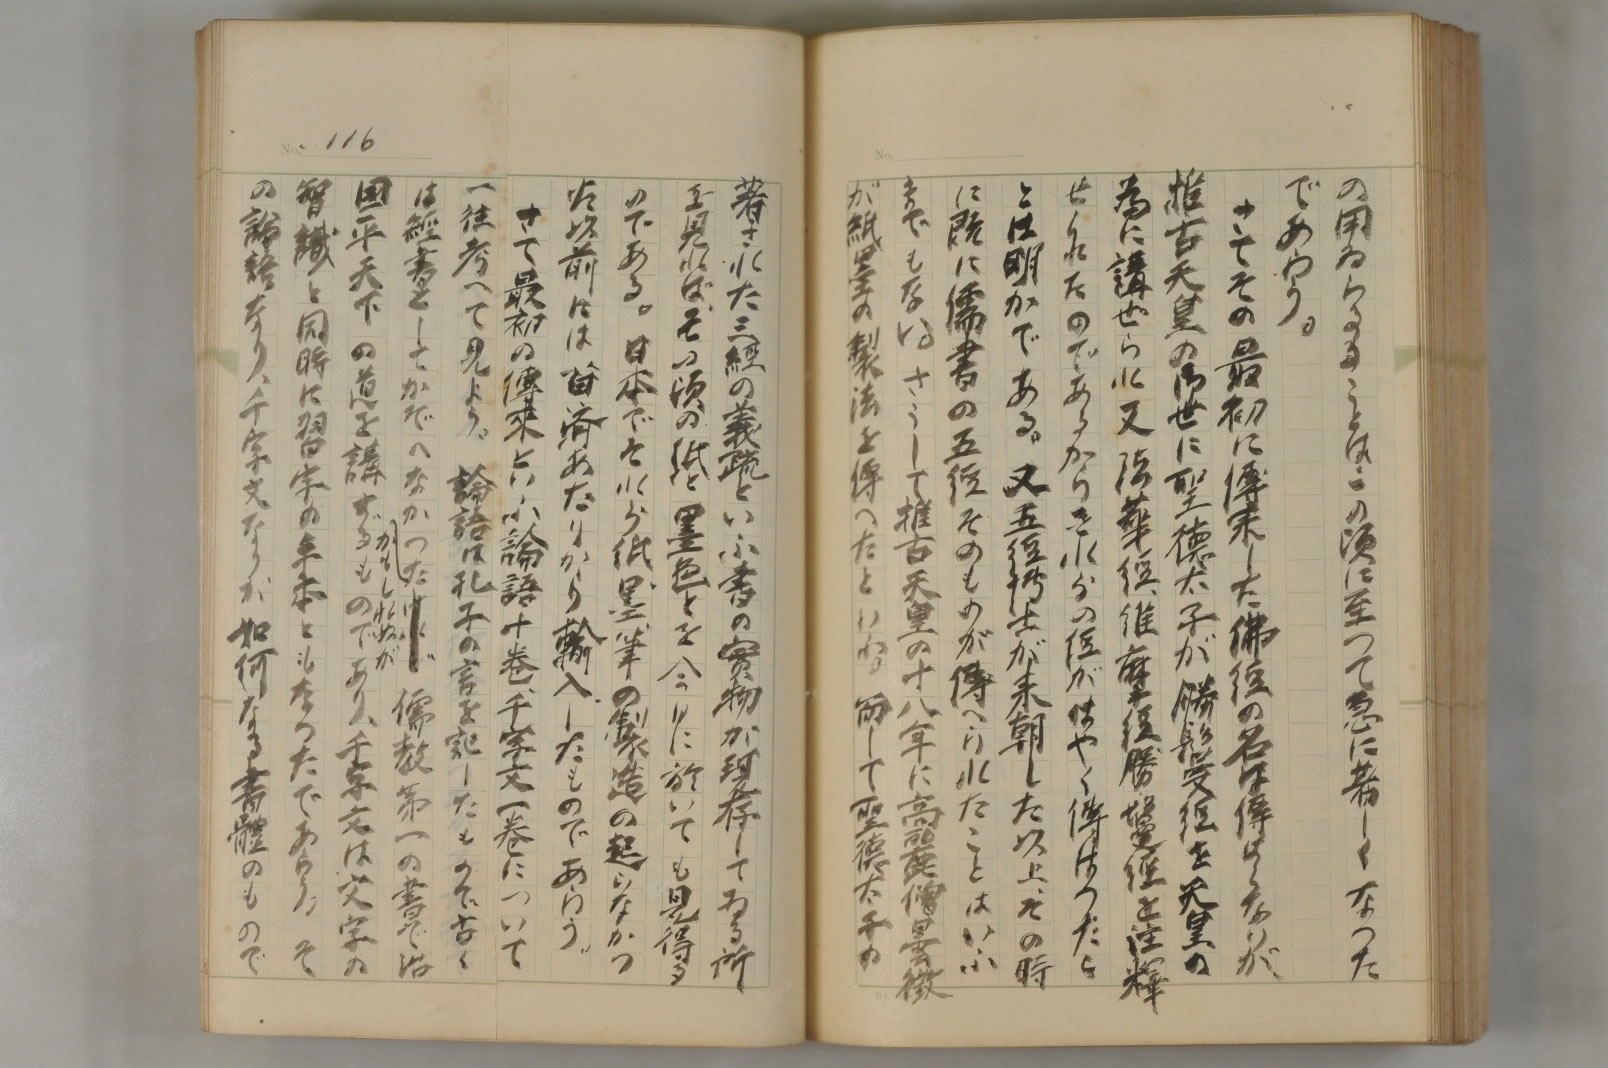 の用ゐらるゝことはこの頃に至つて急に著しくなつた
であらう。
さてその最初に傳来した佛経の名は傳はらないが、
推古天皇の御世に聖徳太子が勝鬘経を天皇の
為に講ぜられ又法華経、維摩経勝鬘経を注釋
せられたのであるからそれらの経がはやく傳はつたこ
とは明かである。又五経博士が来朝した以上、その時
に既に儒書の五経そのものが傳へられたことはいふ
までもない。さうして推古天皇の十八年に高麗僧曇徴
が紙墨の製法を傳へたといふ。而して聖徳太子の
No. 116
著された三經の義疏といふ書の實物が現存してゐる所
を見れば、その頃の紙と墨色とを今日に於いても見得る
のである。日本でそれら紙、墨、筆の製造の起らなかつ
た以前には百済あたりから輸入したものであらう。
さて最初の傳来といふ論語十巻、千字文一巻について
一往考へて見よう。論語は孔子の言を記したもので古く
は經書としてかぞへなかつた
かもしれぬが
儒教第一の書で治
国平天下の道を講ずるものであり、千字文は文字の
智識と同時に習字の手本ともなつたであらう。そ
の論語なり、千字文なりが如何なる書體のもので